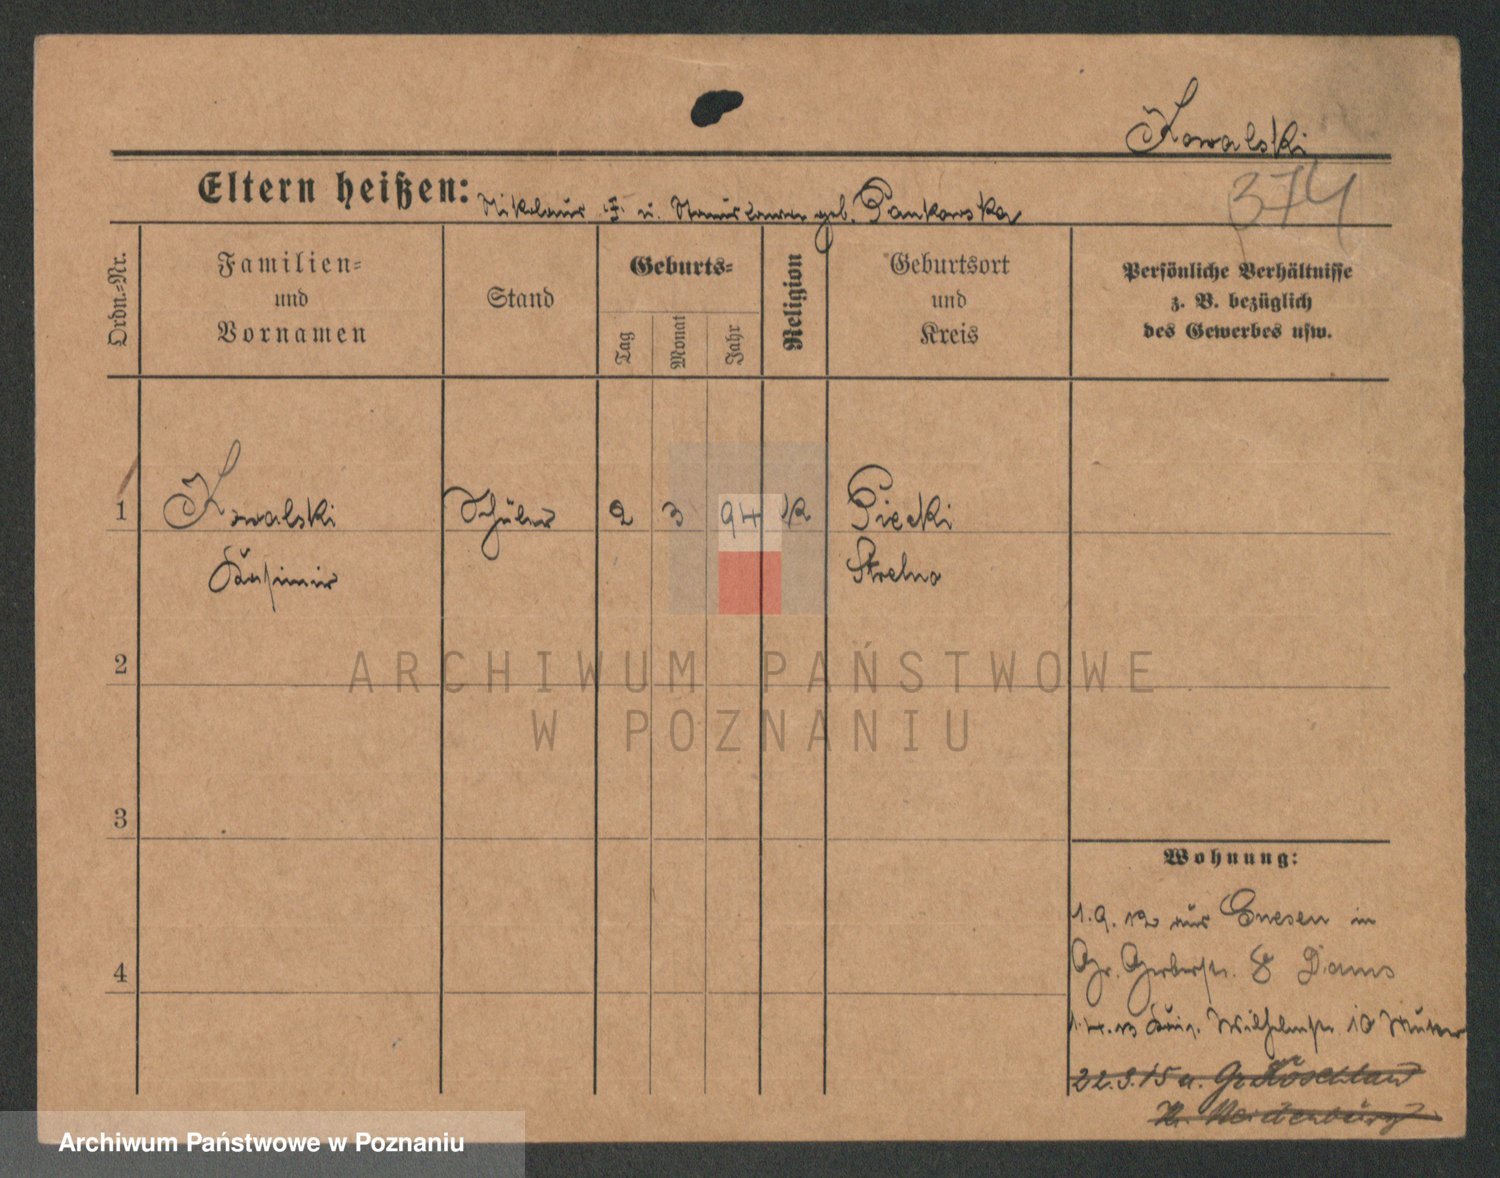 Kowalski
374
Eltern heißen: Nikolaus u. geb. Pankowska
Ordn.=Nr.
Familien=
und
Vornamen
Stand
Geburts=
Tag
Monat
Jahr
Religion
Geburtsort
und
Kreis
Persönliche Verhältnisse
z. B. bezüglich
des Gewerbes usw.
1 Kowalski Schüler 2 3 94 K Piecki
Kasimir Strelno
2
3
4
Wohnung:
1.9.12 aus Gnesen in
Gr. Gerberstr. 8
1.4.13 Wilhelmstr. 10 Mutter
22.3.15 n. Gr.
Kr. Neidenburg
ARCHIWUM PAŃSTWOWE
W POZNANIU
Archiwum Państwowe w Poznaniu